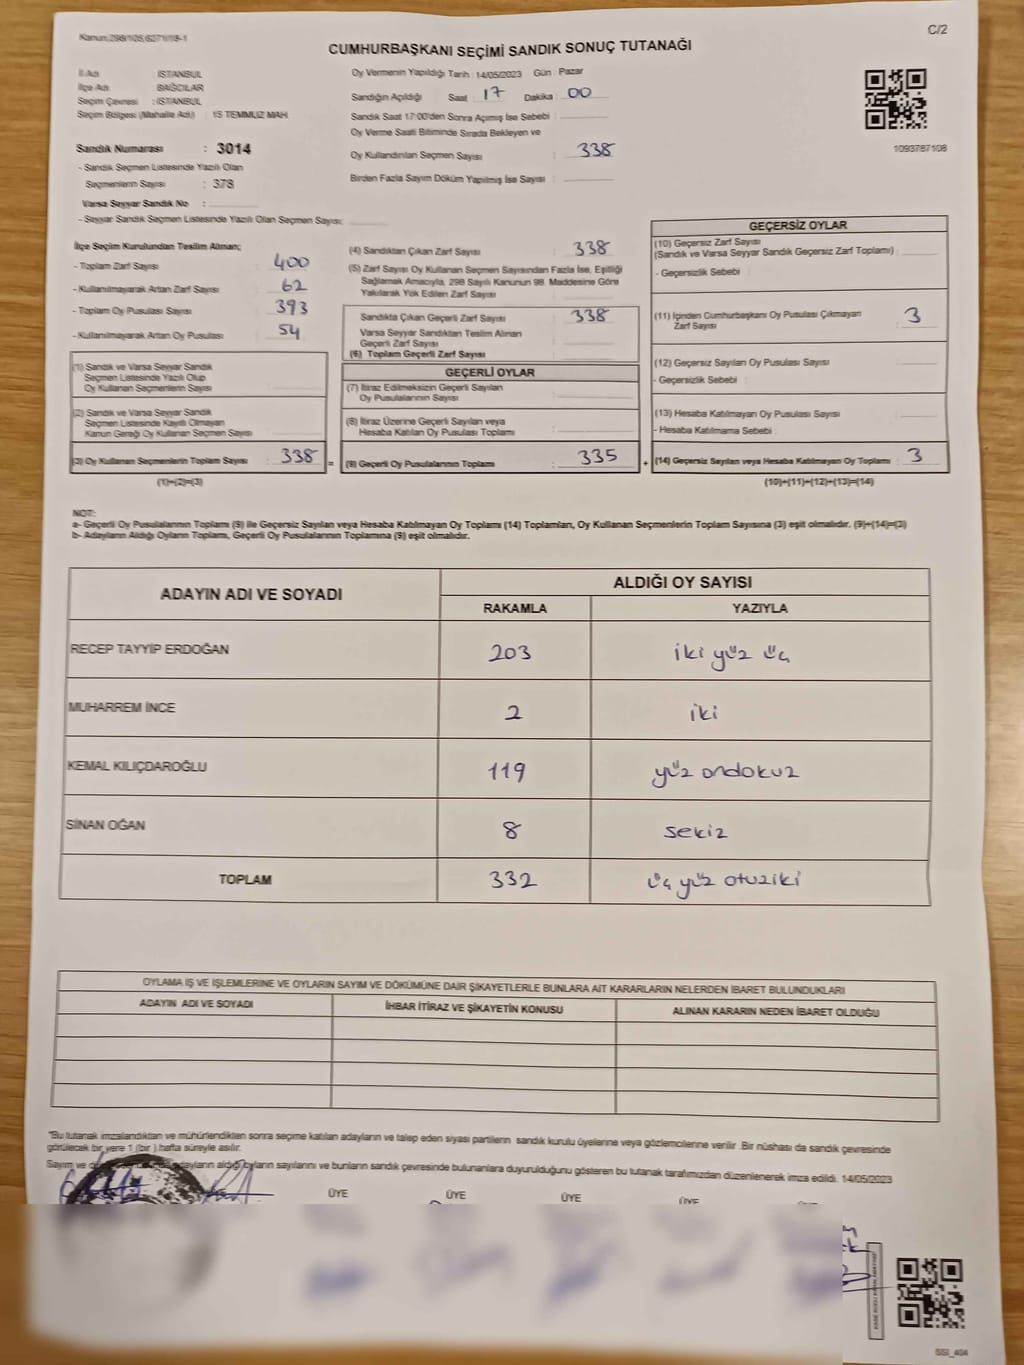 Kanun:298/105,6271/18-1
C/2
CUMHURBAŞKANI SEÇİMİ SANDIK SONUÇ TUTANAĞI
İl Adı : İSTANBUL
İlçe Adı : BAĞCILAR
Seçim Çevresi : İSTANBUL
Seçim Bölgesi (Mahalle Adı) : 15 TEMMUZ MAH.
Sandık Numarası : 3014
- Sandık Seçmen Listesinde Yazılı Olan
Seçmenlerin Sayısı : 378
Varsa Seyyar Sandık No :
- Seyyar Sandık Seçmen Listesinde Yazılı Olan Seçmen Sayısı:
Oy Vermenin Yapıldığı Tarih : 14/05/2023 Gün : Pazar
Sandığın Açıldığı Saat : 17 Dakika : 00
Sandık Saat 17:00'den Sonra Açımış İse Sebebi :
Oy Verme Saati Bitiminde Sırada Bekleyen ve
Oy Kullandırılan Seçmen Sayısı : 338
Birden Fazla Sayım Döküm Yapılmış İse Sayısı :
1093787108
İlçe Seçim Kurulundan Teslim Alınan;
- Toplam Zarf Sayısı : 400
- Kullanılmayarak Artan Zarf Sayısı : 62
- Toplam Oy Pusulası Sayısı : 393
- Kullanılmayarak Artan Oy Pusulası : 54
(1) Sandık ve Varsa Seyyar Sandık
Seçmen Listesinde Yazılı Olup
Oy Kullanan Seçmenlerin Sayısı :
(2) Sandık ve Varsa Seyyar Sandık
Seçmen Listesinde Kayıtlı Olmayan
Kanun Gereği Oy Kullanan Seçmen Sayısı :
(3) Oy Kullanan Seçmenlerin Toplam Sayısı : 338 =
(1)+(2)=(3)
(4) Sandıktan Çıkan Zarf Sayısı : 338
(5) Zarf Sayısı Oy Kullanan Seçmen Sayısından Fazla İse, Eşitliği
Sağlamak Amacıyla, 298 Sayılı Kanunun 98. Maddesine Göre
Yakılarak Yok Edilen Zarf Sayısı :
Sandıkta Çıkan Geçerli Zarf Sayısı : 338
Varsa Seyyar Sandıktan Teslim Alınan
Geçerli Zarf Sayısı :
(6) Toplam Geçerli Zarf Sayısı :
GEÇERLİ OYLAR
(7) İtiraz Edilmeksizin Geçerli Sayılan
Oy Pusulalarının Sayısı :
(8) İtiraz Üzerine Geçerli Sayılan veya
Hesaba Katılan Oy Pusulası Toplamı :
(9) Geçerli Oy Pusulalarının Toplamı : 335 +
GEÇERSİZ OYLAR
(10) Geçersiz Zarf Sayısı
(Sandık ve Varsa Seyyar Sandık Geçersiz Zarf Toplamı) :
- Geçersizlik Sebebi :
(11) İçinden Cumhurbaşkanı Oy Pusulası Çıkmayan
Zarf Sayısı : 3
(12) Geçersiz Sayılan Oy Pusulası Sayısı :
- Geçersizlik Sebebi :
(13) Hesaba Katılmayan Oy Pusulası Sayısı :
- Hesaba Katılmama Sebebi :
(14) Geçersiz Sayılan veya Hesaba Katılmayan Oy Toplamı : 3
(10)+(11)+(12)+(13)=(14)
NOT:
a- Geçerli Oy Pusulalarının Toplamı (9) ile Geçersiz Sayılan veya Hesaba Katılmayan Oy Toplamı (14) Toplamları, Oy Kullanan Seçmenlerin Toplam Sayısına (3) eşit olmalıdır. (9)+(14)=(3)
b- Adayların Aldığı Oyların Toplamı, Geçerli Oy Pusulalarının Toplamına (9) eşit olmalıdır.
ADAYIN ADI VE SOYADI ALDIĞI OY SAYISI
RAKAMLA YAZIYLA
RECEP TAYYİP ERDOĞAN 203 iki yüz üç
MUHARREM İNCE 2 iki
KEMAL KILIÇDAROĞLU 119 yüz ondokuz
SİNAN OĞAN 8 sekiz
TOPLAM 332 üç yüz otuziki
OYLAMA İŞ VE İŞLEMLERİNE VE OYLARIN SAYIM VE DÖKÜMÜNE DAİR ŞİKAYETLERLE BUNLARA AİT KARARLARIN NELERDEN İBARET BULUNDUKLARI
ADAYIN ADI VE SOYADI İHBAR İTİRAZ VE ŞİKAYETİN KONUSU ALINAN KARARIN NEDEN İBARET OLDUĞU
"Bu tutanak imzalandıktan ve mühürlendikten sonra seçime katılan adayların ve talep eden siyasi partilerin sandık kurulu üyelerine veya gözlemcilerine verilir .Bir nüshası da sandık çevresinde
görülecek bir yere 1 (bir ) hafta süreyle asılır.
Sayım ve adayların aldığı oyların sayılarını ve bunların sandık çevresinde bulunanlara duyurulduğunu gösteren bu tutanak tarafımızdan düzenlenerek imza edildi. 14/05/2023
ÜYE ÜYE ÜYE ÜYE
SSI_404